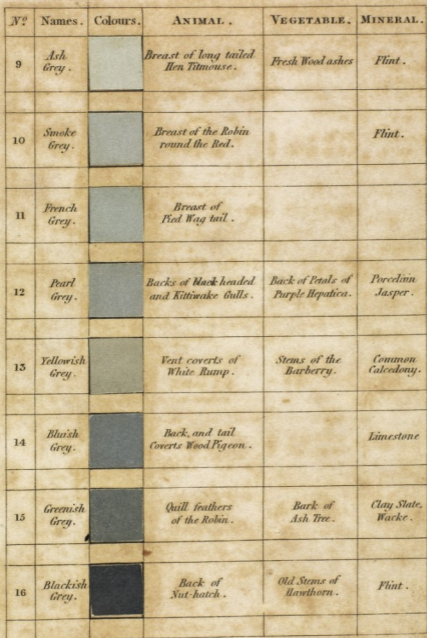 Nº Names. Colours. ANIMAL. VEGETABLE. MINERAL.
9 Ash Grey. Breast of long tailed Hen Titmouse. Fresh Wood ashes Flint.
10 Smoke Grey. Breast of the Robin round the Red. Flint.
11 French Grey. Breast of Pied Wag tail.
12 Pearl Grey. Backs of black headed and Kittiwake Gulls. Back of Petals of Purple Hepatica. Porcelain Jasper.
13 Yellowish Grey. Vent coverts of White Rump. Stems of the Barberry. Common Calcedony.
14 Bluish Grey. Back, and tail Coverts Wood Pigeon. Limestone
15 Greenish Grey. Quill feathers of the Robin. Bark of Ash Tree. Clay Slate, Wacke.
16 Blackish Grey. Back of Nut-hatch. Old Stems of Hawthorn. Flint.